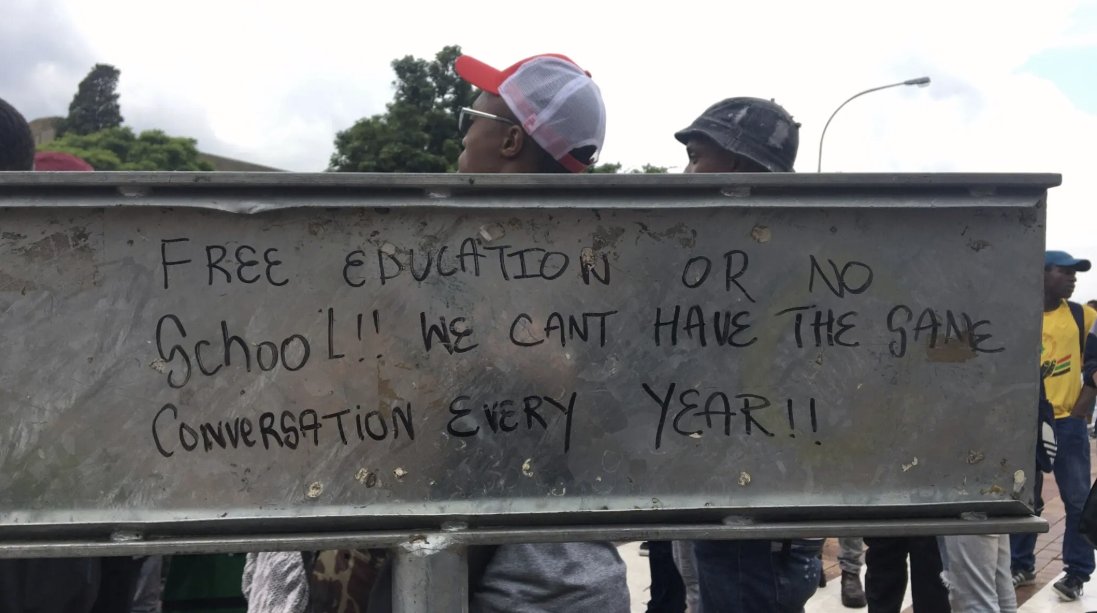 FREE EDUCATION OR NO
SchooL!! WE CANT HAVE THE SAME
CONVERSATION EVERY YEAR!!